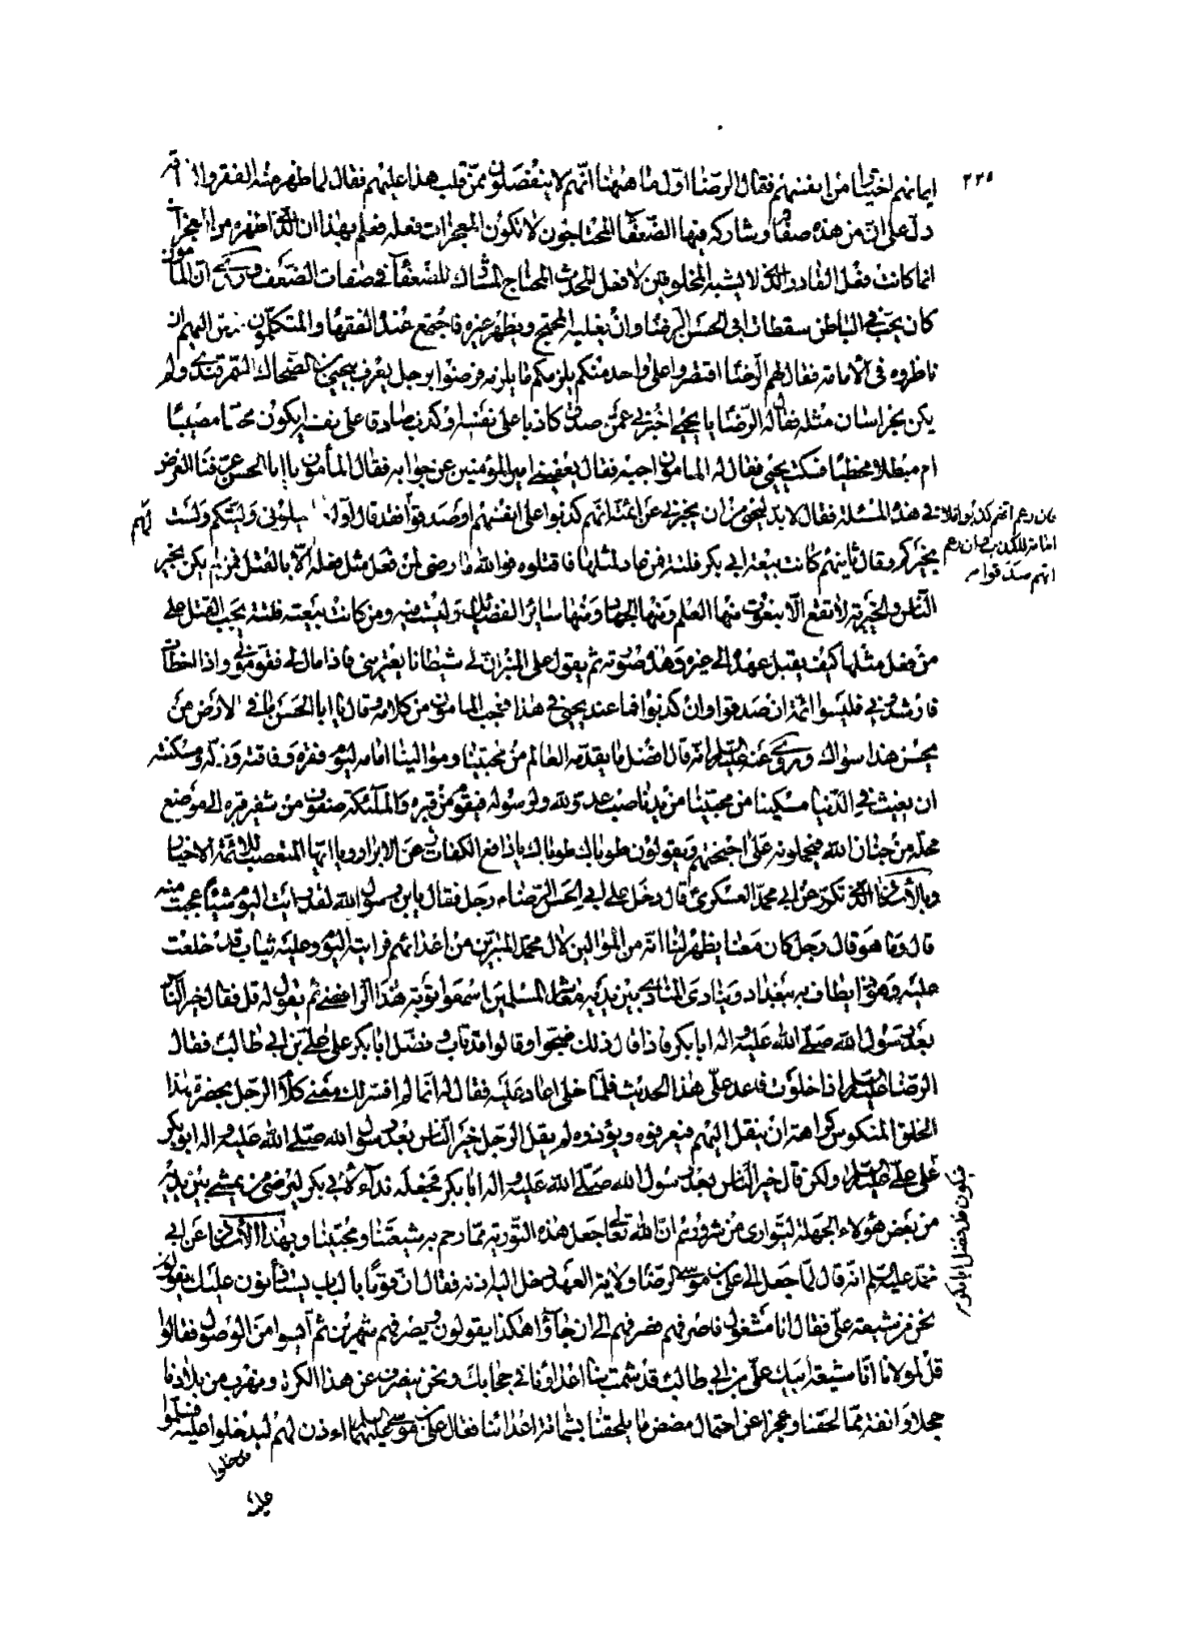 ٢٢٥
ايمانهم اختيارا من انفسهم فقال الرضا اول ما هيهنا انهم لا ينفصلون ممن قلب هذا عليهم فقال لما ظهر منه الفقر والفاقة
دل على ان من هذه صفاته وشاركه فيها الضعفاء المحتاجون لا تكون المعجزات فعله فعلم بهذا ان الذى اظهره من المعجزات
انما كانت فعل القادر الذى لا يشبه المخلوقين لا فعل المحدث المحتاج المشارك للضعفاء في صفات الضعف وروى ان المأمون
كان يحب في الباطن سقطات ابى الحسن الرضا وان يغلبه المحتج ويظهر غيره فاجتمع عنده الفقهاء والمتكلمون فدس اليهم ان
ناظروه فى الامامة فقال لهم الرضا اقتصروا على واحد منكم يلزمكم ما يلزمه فرضوا برجل يعرف بيحيى بن الضحاك السمرقندى ولم
يكن بخراسان مثله فقال له الرضا يا يحيى اخبرنى عمن صدق كاذبا على نفسه او كذب صادقا على نفسه ايكون محقا مصيبا
ام مبطلا مخطيا فسكت يحيى فقال له المامون اجبه فقال يعفينى امير المؤمنين عن جوابه فقال المأمون يا ابا الحسن عرفنا الغرض
في هذه المسئلة فقال لا بد ليحيى من ان يخبرنى عن ائمته انهم كذبوا على انفسهم او صدقوا فقد قال اولهم وليتكم ولست بخيركم
فان زعم انهم كذبوا فلا
امامة للكذاب وان زعم
انهم صدقوا
وقال ثانيهم كانت بيعة ابى بكر فلتة فمن عاد لمثلها فاقتلوه فوالله ما رضى لمن فعل مثل فعله الا بالقتل فمن لم يكن بخير
الناس والخيرية لا تقع الا بنعوت منها العلم ومنها الجهاد ومنها سائر الفضايل وليست فيه ومن كانت بيعته فلتة يجب القتل على
من فعل مثلها كيف يقبل عهده الى غيره وهذه صورته ثم يقول على المنبر ان لى شيطانا يعترينى فاذا مال بى فقومونى واذا اخطأت
فارشدونى فليسوا ائمة ان صدقوا وان كذبوا فما عند يحيى فى هذا فعجب المامون من كلامه وقال يا ابا الحسن ما فى الارض من
يحسن هذا سواك وروى عنه عليه السلام انه قال افضل ما يقدمه العالم من محبينا وموالينا امامه ليوم فقره وفاقته وذله ومسكنته
ان يغيث فى الدنيا مسكينا من محبينا من يد ناصب عدو لله ولرسوله فيقوم من قبره والملائكة صفوف من شفير قبره الى موضع
محله من جنان الله فيحملونه على اجنحتهم ويقولون طوباك طوباك يا دافع الكلاب عن الابرار ويا ايها المتعصب للائمة الاخيار
وبالاسناد الذى تكرر عن ابى محمد العسكرى قال دخل على ابى الحسن الرضا رجل فقال يا بن رسول الله لقد رايت اليوم شيئا عجبت منه
قال وما هو قال رجل كان معنا يظهر لنا انه من الموالين لآل محمد المتبرين من اعدائهم فرايته اليوم وعليه ثياب قد خلعت
عليه وهو ذا يطاف به ببغداد وينادى المنادى بين يديه معاشر المسلمين اسمعوا توبة هذا الرافضى ثم يقول له قل فقال خير الناس
بعد رسول الله صلى الله عليه واله ابا بكر فاذا قال ذلك ضجوا وقالوا قد تاب وفضل ابا بكر على على بن ابى طالب فقال
الرضا عليه السلام اذا خلوت فاعد على هذا الحديث فلما خلى اعاد عليه فقال له انما لم افسر لك معنى كلام الرجل بحضرة هذا
الخلق المنكوس كراهة ان ينقل اليهم فيعرفوه ويؤذوه لم يقل الرجل خير الناس بعد رسول الله صلى الله عليه واله ابو بكر
فيكون قد فضل ابا بكر
على على عليه السلام ولكن قال خير الناس بعد رسول الله صلى الله عليه واله ابا بكر فجعله نداء لابى بكر ليرضى من يمشى بين يديه
من بعض هؤلاء الجهلة ليتوارى من شرورهم ان الله تعالى جعل هذه التورية مما رحم به شيعتنا ومحبينا وبهذا الاسناد عن ابى
محمد عليه السلام انه قال لما جعل الى على بن موسى الرضا ولاية العهد دخل اليه اذنه فقال ان قوما بالباب يستأذنون عليك يقولون
نحن من شيعة على فقال انا مشغول فاصرفهم فصرفهم الى ان جاؤا هكذا يقولون ويصرفهم شهرين ثم ايسوا من الوصول فقالوا
قل لمولانا انا شيعة ابيك على بن ابى طالب قد شمت بنا اعداؤنا فى حجابك ونحن ننصرف عن هذه الكرة ونهرب من بلادنا
خجلا وانفة مما لحقنا وعجزا عن احتمال مضض ما يلحقنا بشماتة اعدائنا فقال على بن موسى عليهما السلام اءذن لهم ليدخلوا
فدخلوا عليه فسلموا
عليه